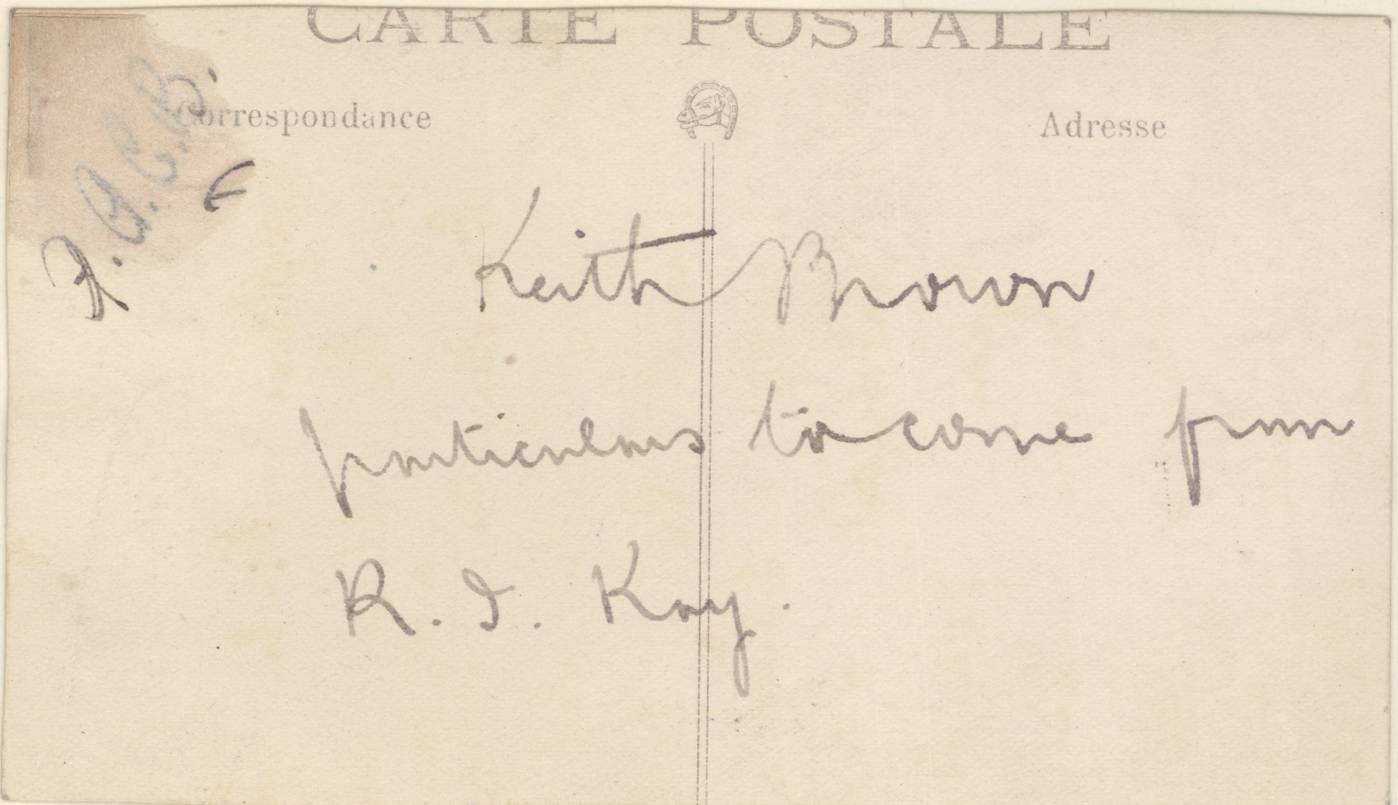 CARTE POSTALE
Correspondance
Adresse
Keith Brown
particulars to come from
R. I. Kay.